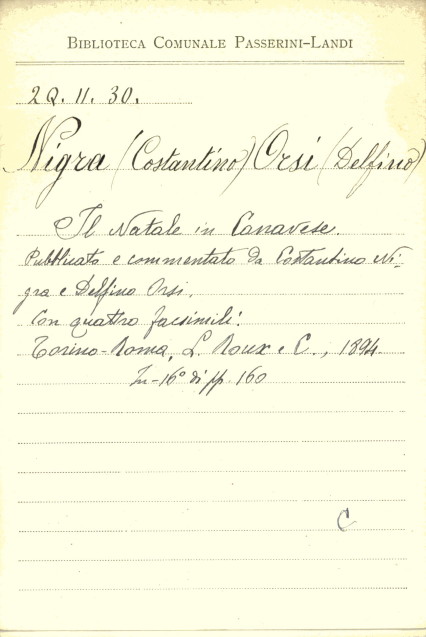 BIBLIOTECA COMUNALE PASSERINI-LANDI
2Q. 11. 30.
Nigra (Costantino) Orsi (Delfino)
Il Natale in Canavese.
Pubblicato e commentato da Costantino Ni-
gra e Delfino Orsi.
Con quattro facsimili.
Torino-Roma, L. Roux e C., 1894
In-16° di pp. 160
C